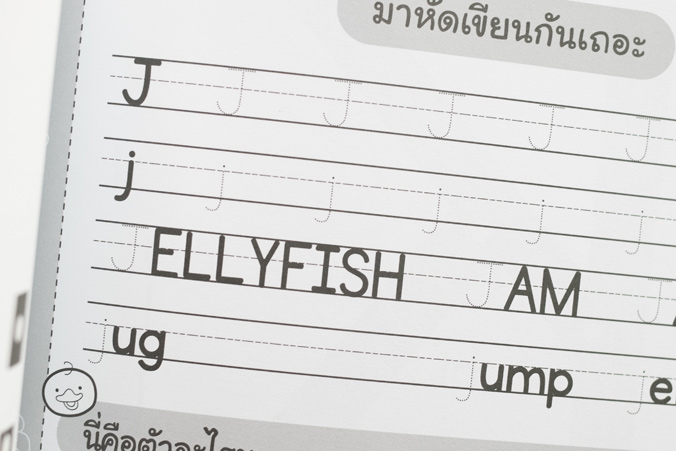 มาหัดเขียนกันเถอะ
J J J J J J
j j j j j j
JELLYFISH JAM J
jug jump je
นี่คือตัวอะไร